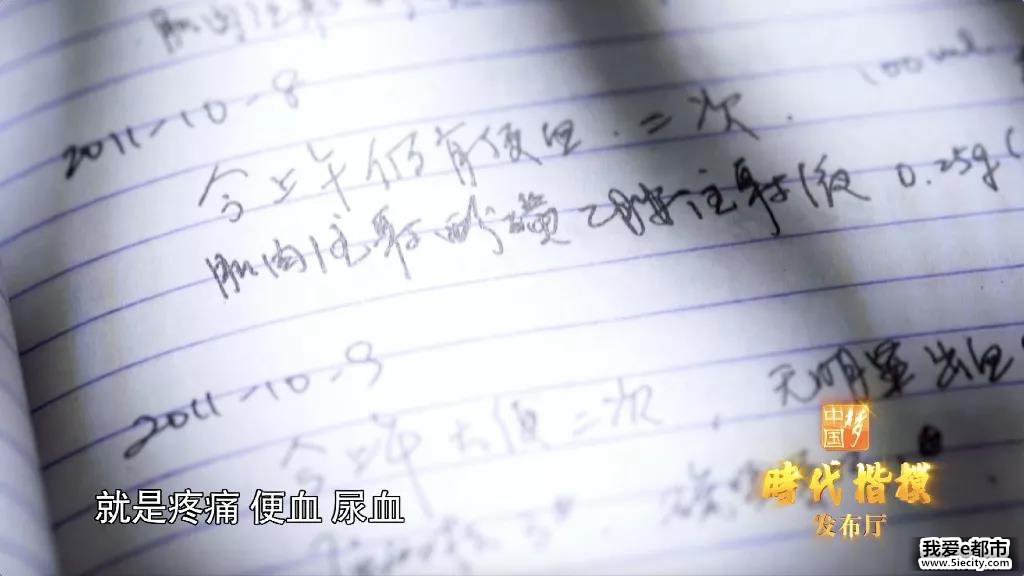 肌肉注射
100ml
2011-10-8
今上午仍有便血.二次.
肌肉注射酚磺乙胺注射液 0.25g(
2011-10-9
今上午大便二次，无明显出血
中国梦
時代楷模
发布厅
就是疼痛 便血 尿血
我爱e都市
www.5iecity.com